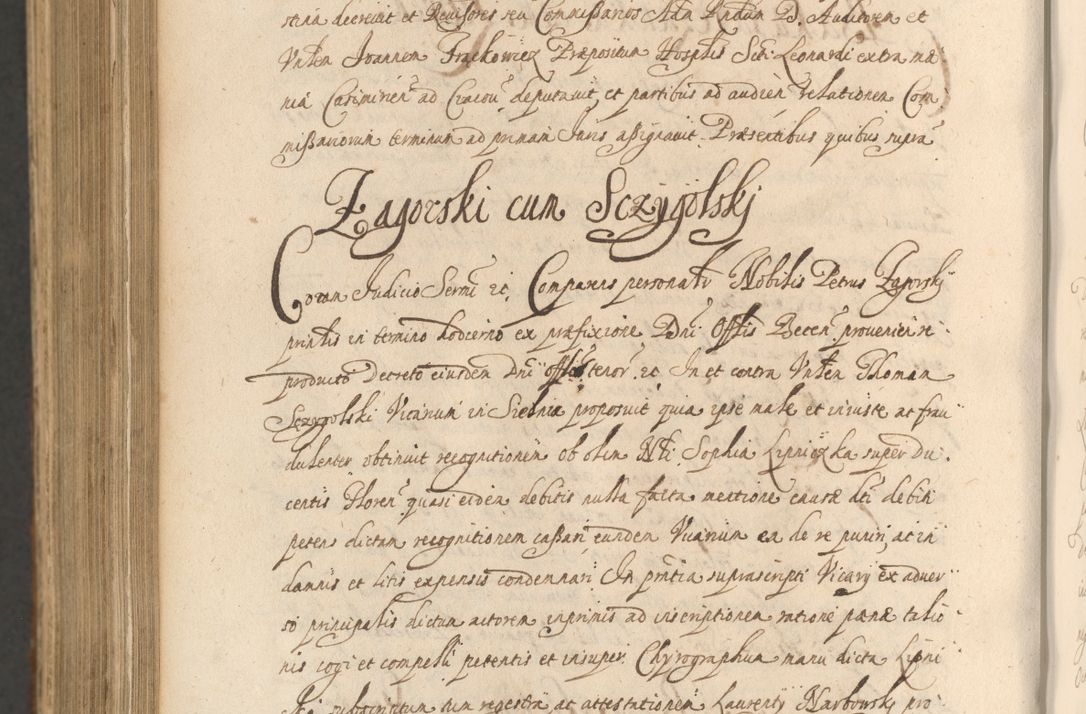 stina decrevit et Revisores seu Commissarios Adm Rndum D. Auditorem et
Vnlem Joannem Frąckowicz Præpositum Hosplis Scti Leonardi extra mæ
nia Casimirien ad Cracou deputavit, et partibus ad audien relationem Com
missariorum terminum ad primam Juris assignavit. Præsentibus quibus supra
Zagorski cum Sczygolskj
Coram Judicio Sermi etc. Comparens personalr Nobilis Petrus Zagorskj
prntis in termino hodierno ex præfixione Dni Offlis Becen provenien re
producto Decreto eiusdem Dni offlis tenor etc. In et contra Vnlem Thomam
Sczygolski Vicarium in Sielnia proposuit quia ipse male et iniuste ac frau
dulenter obtinuit recognitionem ob olim Nli Sophia Lipniczka super Du
centis Floren quasi eidem debitis nulla facta mentione causæ dti debiti
petens dictam recognitionem cassari eundem Vicarium ea de re puniri, ac in
damnis et litis expensis condemnari In prntia suprascripti Vicarij ex adver
so principalis dictum actorem inprimis ad inscriptionem ratione pænæ talio
nis cogi et compelli petentis et insuper Chyrographum manu dicta Lipni
cka subscriptum tum regestra ac attestationem Laurentij Narbowskj pro